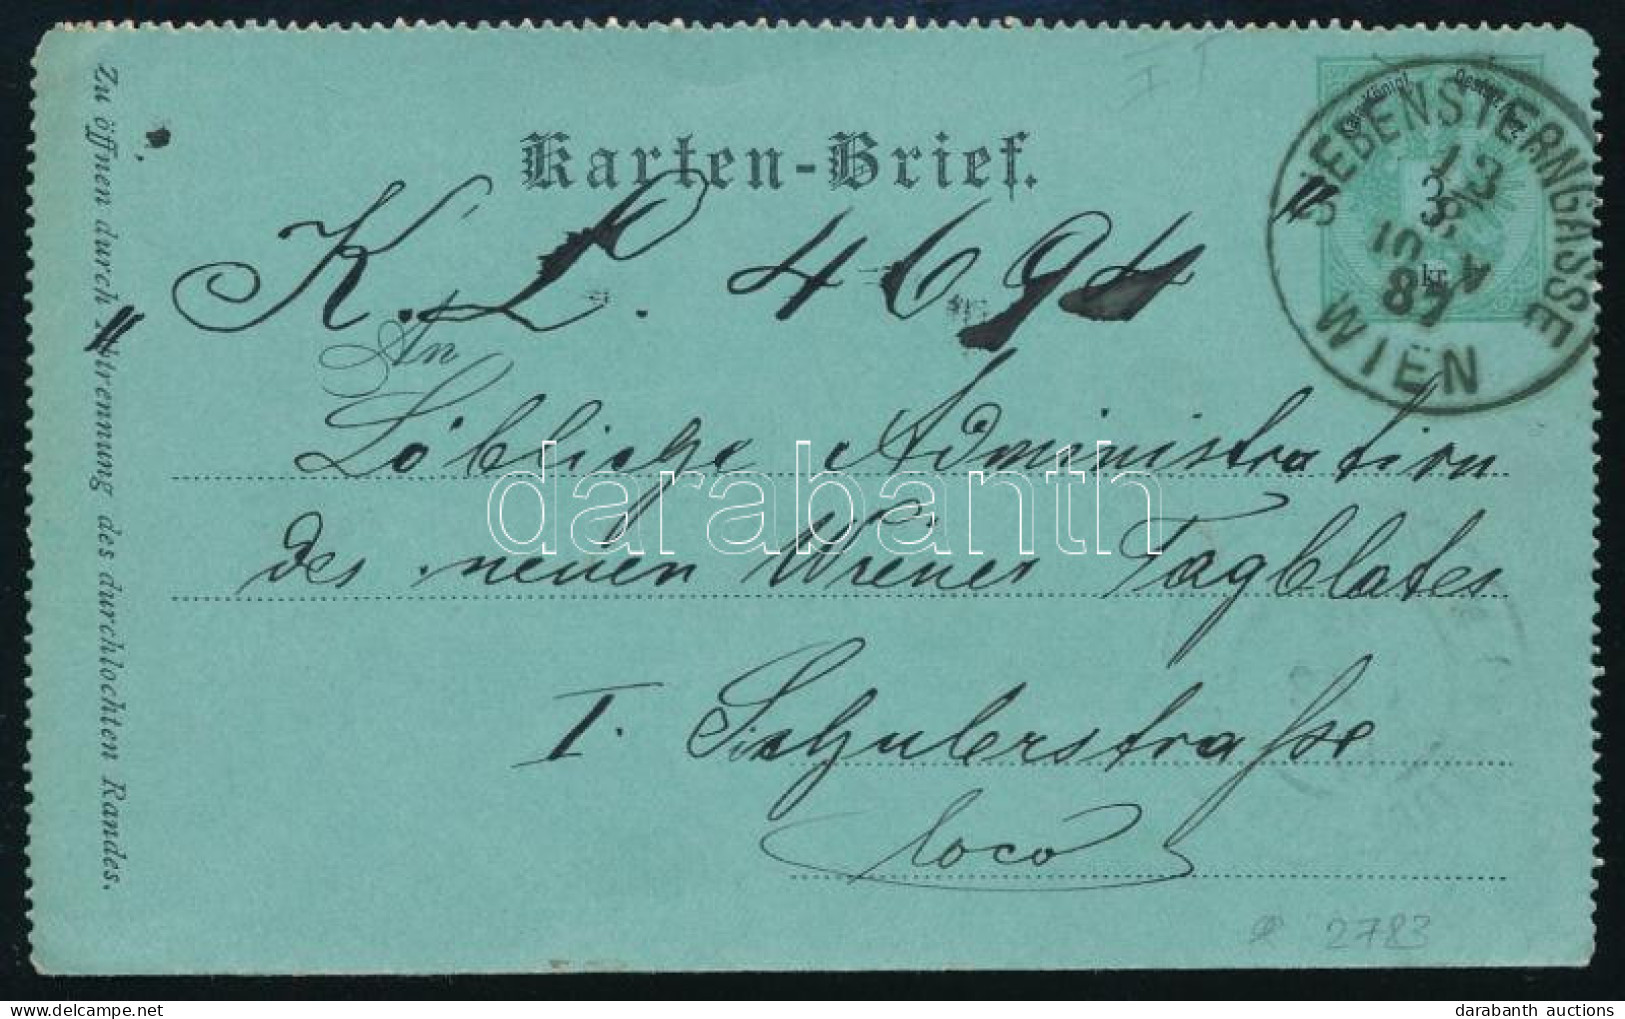 Zu öffnen durch Abtrennung des durchlochten Randes.
Karten-Brief.
3 kr.
SIEBENSTERNGASSE
WIEN
"K. L. 4694"
An
Löbliche Administration
des neuen Wiener Tagblates
I. Schulerstraße
loco
2783
darabanth
darabanth auctions